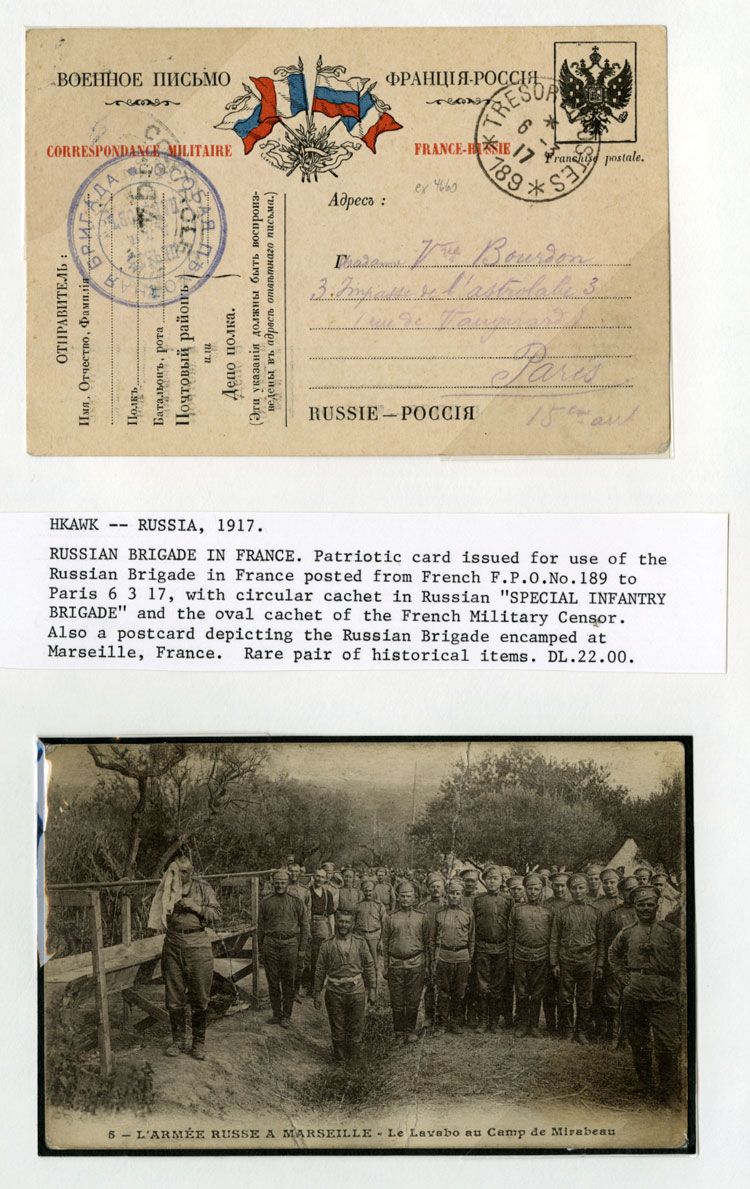 ВОЕННОЕ ПИСЬМО ФРАНЦІЯ-РОССІЯ
CORRESPONDANCE MILITAIRE FRANCE-RUSSIE
Franchise postale.
* TRESOR POSTES *
6 - 3
17
189
ОСОБАЯ ПѢХОТНАЯ БРИГАДА
ex 4660
Адресъ :
Madame Vve Bourdon
3. Impasse de l'astrolabe 3
Paris
15eme arrt
RUSSIE—РОССІЯ
ОТПРАВИТЕЛЬ :
Имя, Отчество, Фамилія
Полкъ
Батальонъ, рота
Почтовый районъ
или
Депо полка.
(Эти указанія должны быть воспроиз-
ведены въ адресѣ отвѣтнаго письма.)
HKAWK -- RUSSIA, 1917.
RUSSIAN BRIGADE IN FRANCE. Patriotic card issued for use of the
Russian Brigade in France posted from French F.P.O.No.189 to
Paris 6 3 17, with circular cachet in Russian "SPECIAL INFANTRY
BRIGADE" and the oval cachet of the French Military Censor.
Also a postcard depicting the Russian Brigade encamped at
Marseille, France. Rare pair of historical items. DL.22.00.
5 — L'ARMÉE RUSSE A MARSEILLE - Le Lavabo au Camp de Mirabeau